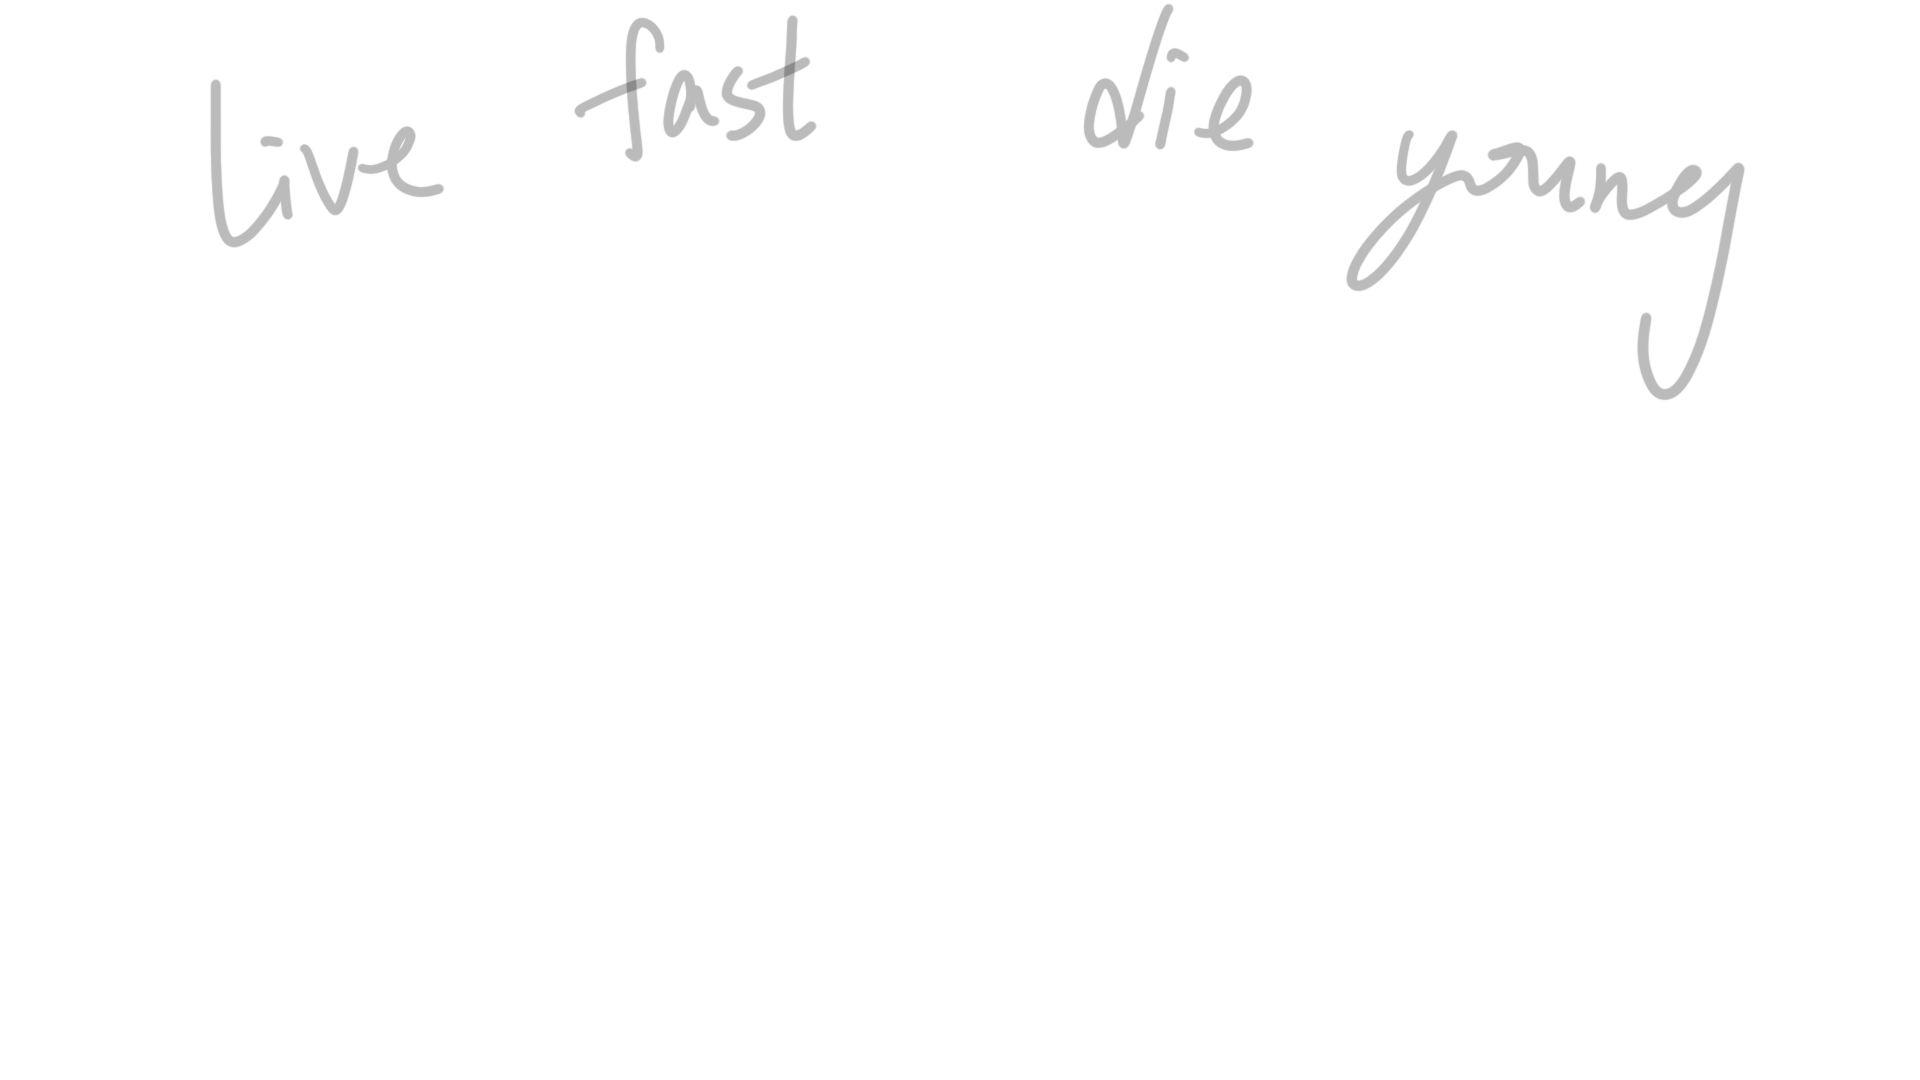 live fast die young